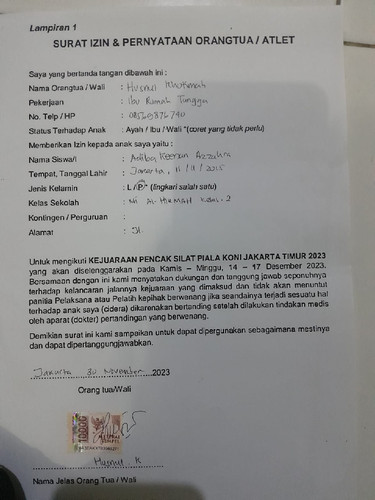 Lampiran 1
SURAT IZIN & PERNYATAAN ORANGTUA / ATLET
Saya yang bertanda tangan dibawah ini :
Nama Orangtua / Wali : Husnul Khotimah
Pekerjaan : Ibu Rumah Tangga
No. Telp / HP :
Status Terhadap Anak : Ayah / Ibu / Wali *(coret yang tidak perlu)
Memberikan Izin kepada anak saya yaitu :
Nama Siswa/i : Keenan Azzahra
Tempat, Tanggal Lahir : Jakarta, 11/11/2015
Jenis Kelamin : L / P* (lingkari salah satu)
Kelas Sekolah : MI AL-HIKMAH Kelas. 2
Kontingen / Perguruan :
Alamat : Jl.
Untuk mengikuti KEJUARAAN PENCAK SILAT PIALA KONI JAKARTA TIMUR 2023
yang akan diselenggarakan pada Kamis – Minggu, 14 – 17 Desember 2023.
Bersamaan dengan ini kami menyatakan dukungan dan tanggung jawab sepenuhnya
terhadap kelancaran jalannya kejuaraan yang dimaksud dan tidak akan menuntut
panitia Pelaksana atau Pelatih kepihak berwenang jika seandainya terjadi sesuatu hal
terhadap anak saya (cidera) dikarenakan bertanding setelah dilakukan tindakan medis
oleh aparat (dokter) pertandingan yang berwenang.
Demikian surat ini kami sampaikan untuk dapat dipergunakan sebagaimana mestinya
dan dapat dipertanggungjawabkan.
Jakarta 30 November 2023
Orang tua/Wali
10000
Husnul. K
Nama Jelas Orang Tua / Wali